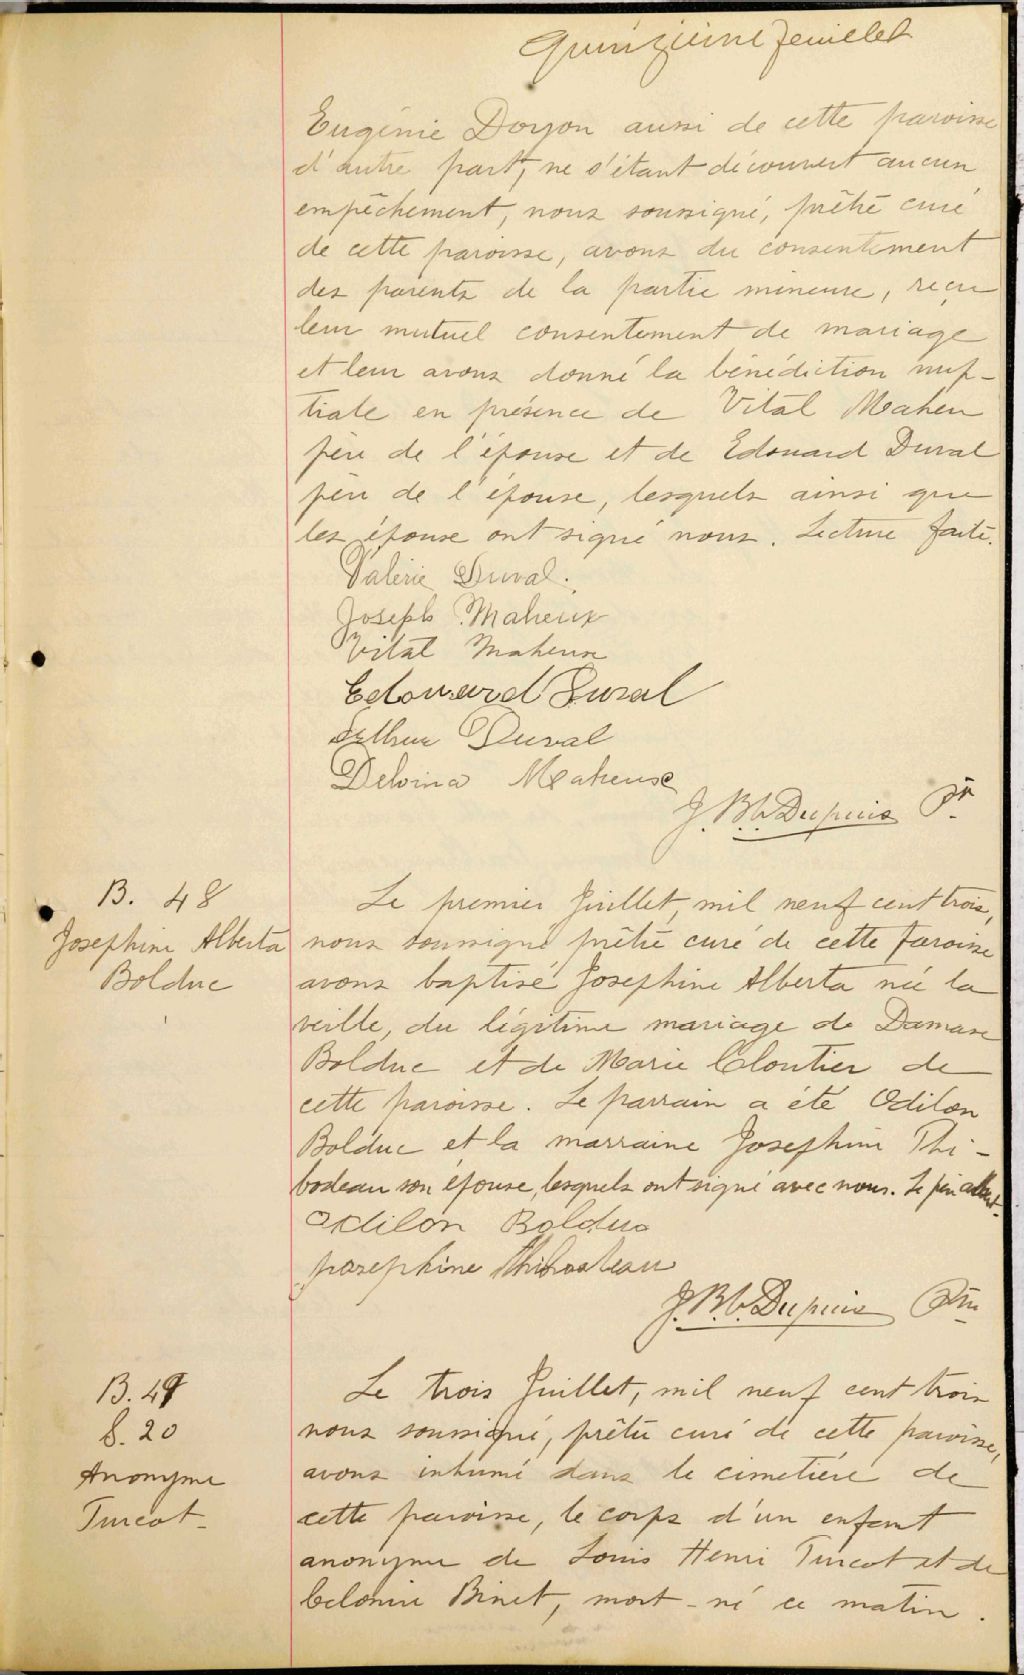 Quinzième feuillet
Eugénie Doyon aussi de cette paroisse
d'autre part, ne s'étant découvert aucun
empêchement, nous soussigné, prêtre curé
de cette paroisse, avons du consentement
des parents de la partie mineure, reçu
leur mutuel consentement de mariage
et leur avons donné la bénédiction nup-
tiale en présence de Vital Maheu
père de l'épouse et de Edouard Duval
père de l'épouse, lesquels ainsi que
les épouse ont signé nous. Lecture faite.
Valérie Duval.
Joseph Maheux
Vital Maheux
Edouard Duval
Duval
Delvina Maheux
J. Bte Dupuis Ptr
B. 48
Josephine Alberta
Bolduc
Le premier Juillet, mil neuf cent trois,
nous soussigné prêtre curé de cette paroisse
avons baptisé Josephine Alberta née la
veille, du légitime mariage de Damase
Bolduc et de Marie Cloutier de
cette paroisse. Le parrain a été Odilon
Bolduc et la marraine Josephine Thi-
bodeau son épouse, lesquels ont signé avec nous. Le père absent.
Odilon Bolduc
Josephine Thibodeau
J. Bte Dupuis Ptre
B. 49
S. 20
Anonyme
Turcot
Le trois Juillet, mil neuf cent trois
nous soussigné, prêtre curé de cette paroisse,
avons inhumé dans le cimetière de
cette paroisse, le corps d'un enfant
anonyme de Louis Henri Turcot et de
Célanire Binet, mort-né ce matin.